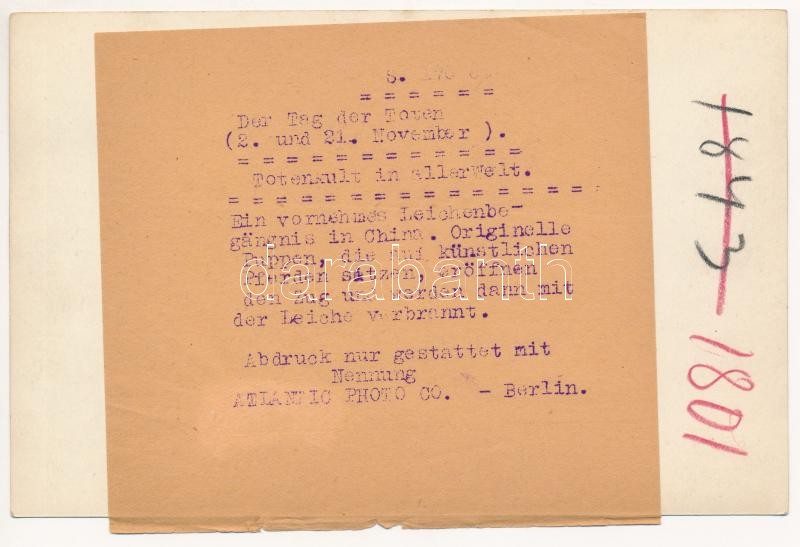 S.
= = = = = =
Der Tag der Toten
(2. und 21. November ).
= = = = = = = = = = = = =
Totenkult in aller Welt.
= = = = = = = = = = = = = = = = =
Ein vornehmes Leichenbe-
gängnis in China. Originelle
Puppen, die auf künstlichen
Pferden sitzen, eröffnen
den Zug und werden dann mit
der Leiche verbrannt.
Abdruck nur gestattet mit
Nennung
ATLANTIC PHOTO CO. - Berlin.
darabanth
1843
1801